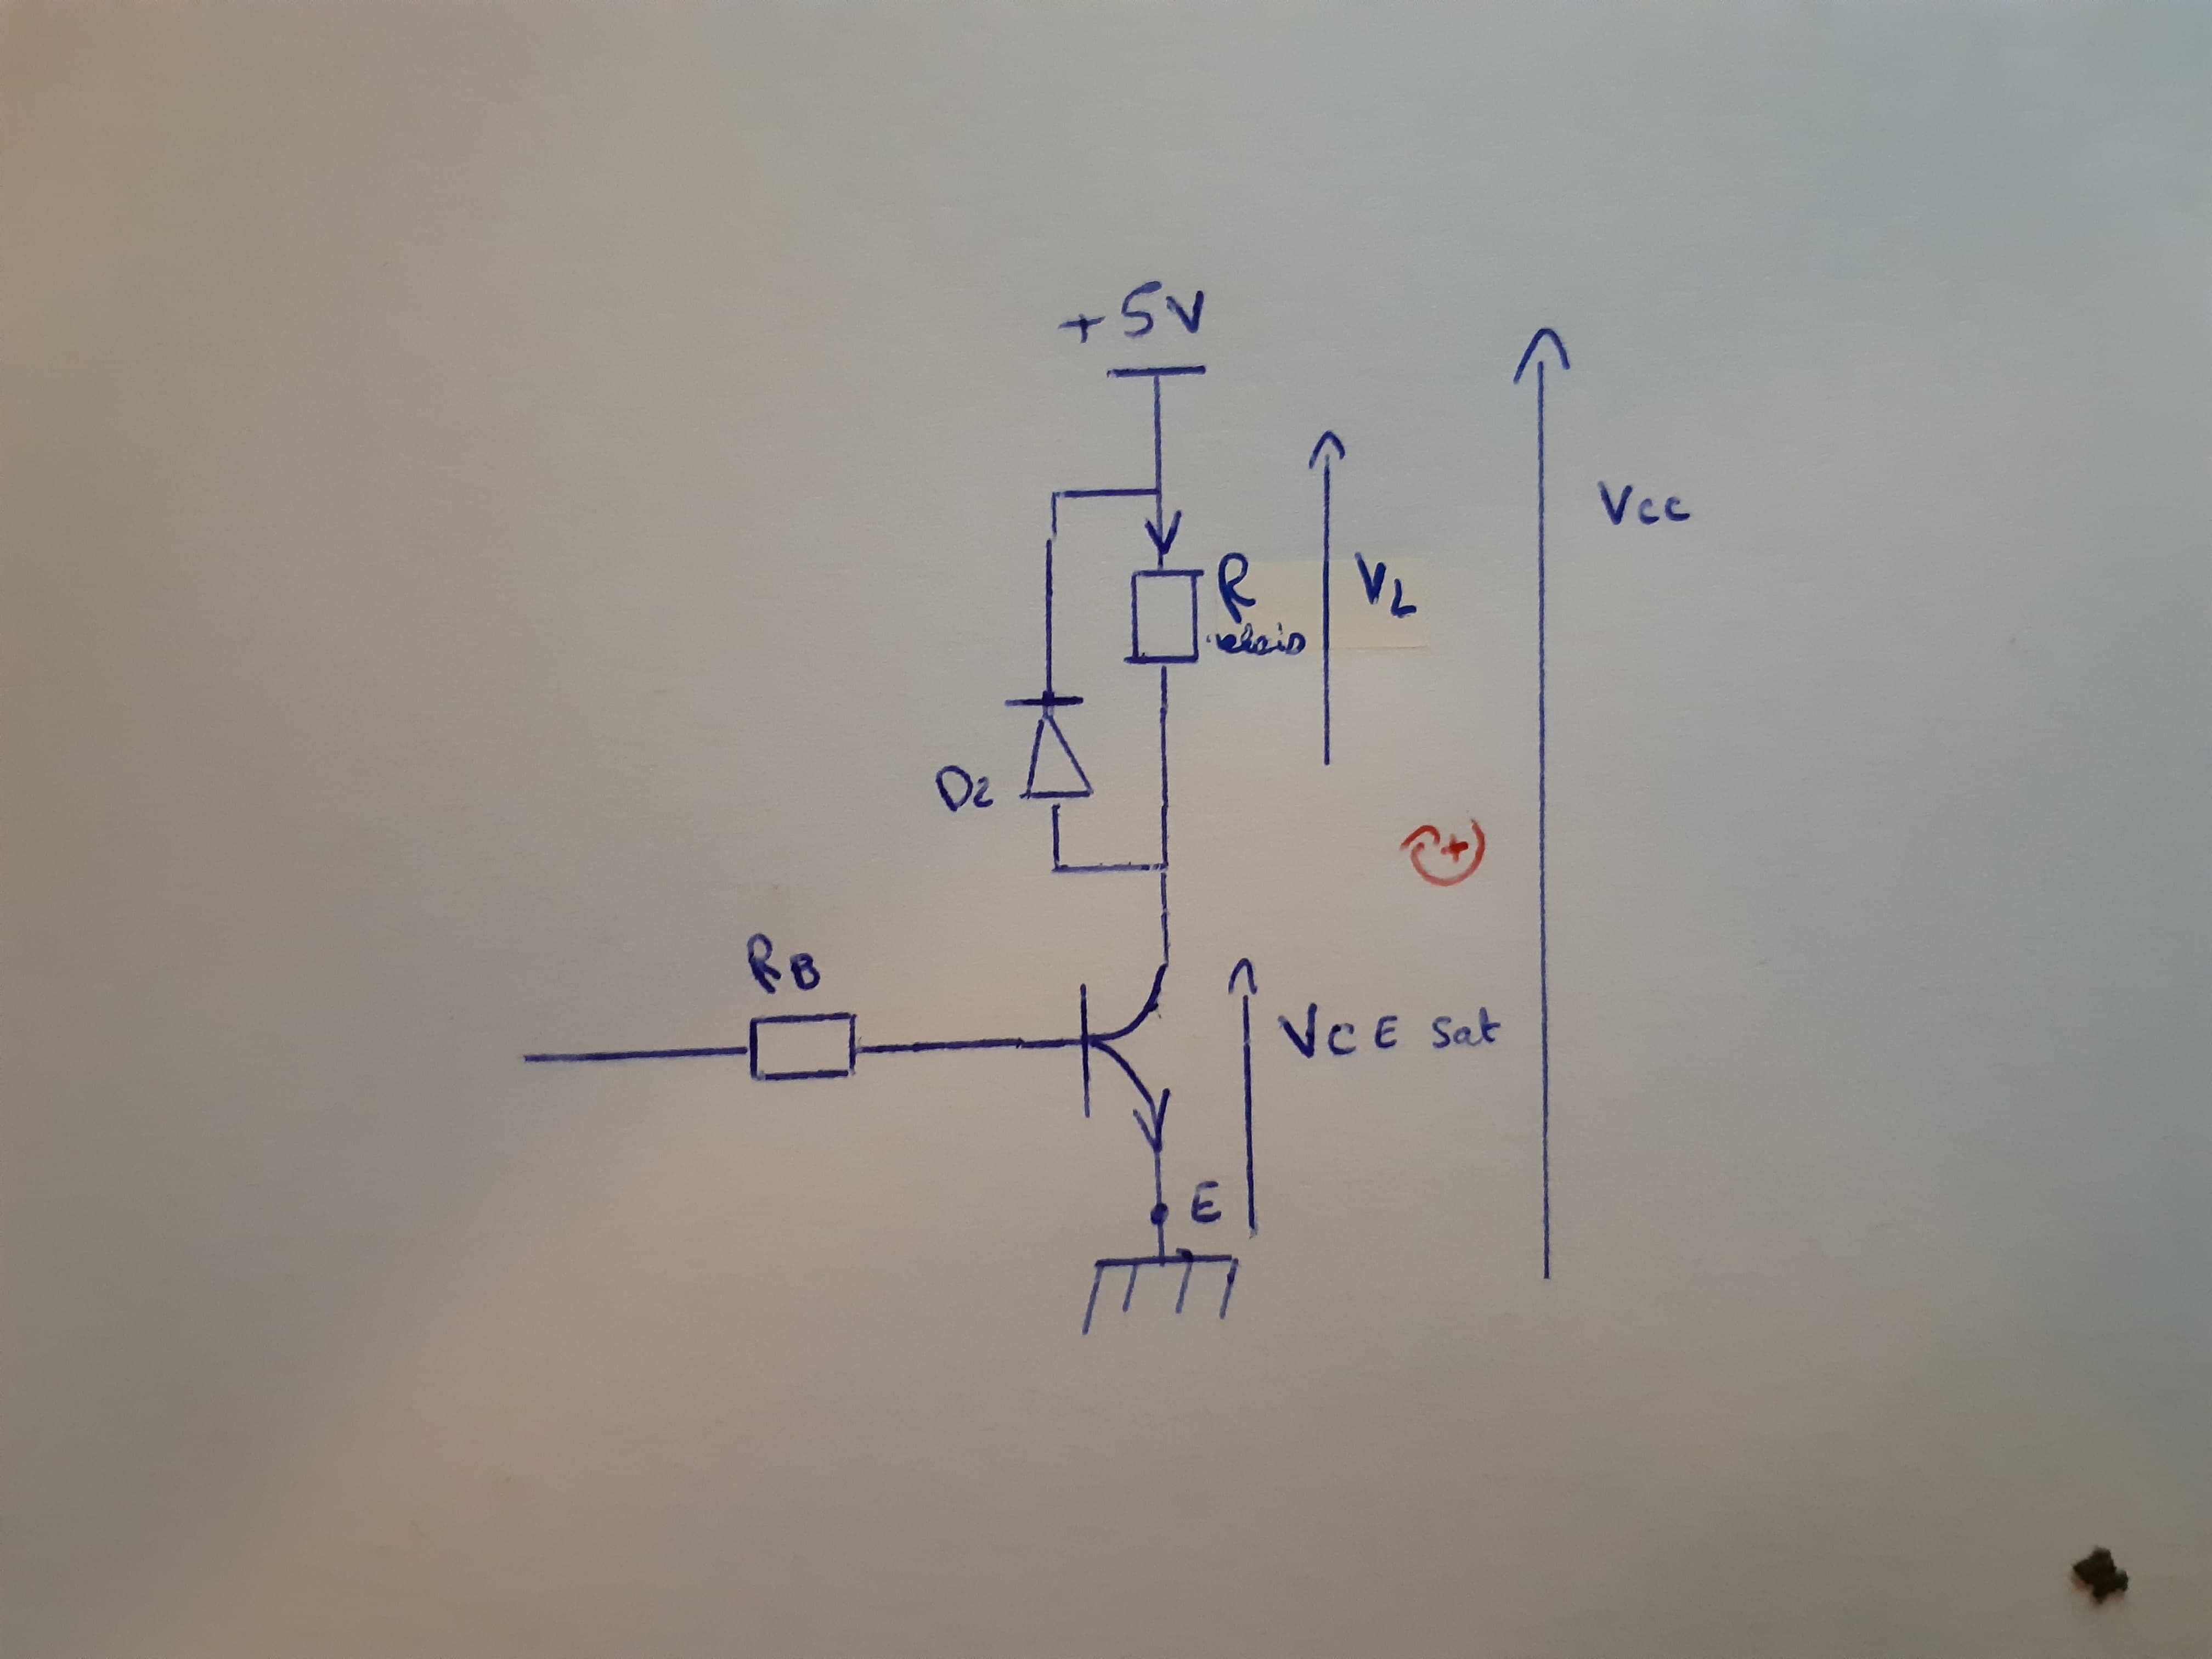 +5V
Vcc
R
relais
VL
D2
+
RB
VCE sat
E